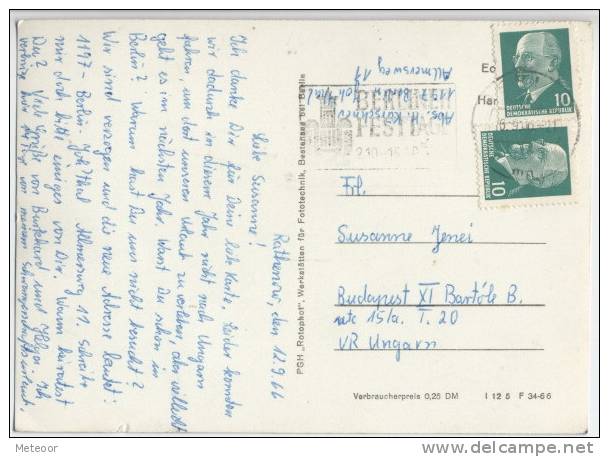 Rathenow, den 12.9.66
Liebe Susanne!
Ich danke Dir für Deine liebe Karte. Leider konnten
wir dadurch in diesem Jahr nicht nach Ungarn
fahren, um dort unseren Urlaub zu verleben, aber vielleicht
geht es im nächsten Jahr. Warst Du schon in
Berlin? Warum hast Du uns nicht besucht?
Wir sind verzogen und die neue Adresse lautet:
1197 - Berlin - Joh'thal Allmersweg 11. Schreibe
mir doch bitte einiges von Dir. Wann heiratest
Du? Viele Grüße von Burkhard und Helga. Ich
verbringe hier
von meinem Schwangerschaftsurlaub.
PGH „Rotophot", Werkstätten für Fototechnik, Bestensee bei Berlin
Abs. H.
1197 Berlin Joh'thal
Allmersweg 11
BERLINER
FESTTAGE
Ec
Har
DEUTSCHE
DEMOKRATISCHE REPUBLIK
10
DEUTSCHE
DEMOKRATISCHE REPUBLIK
10
Frl.
Susanne Jenei
Budapest XI Bartók B.
utc 15/a. I. 20
VR Ungarn
Verbraucherpreis 0,25 DM I 12 5 F 34-66
Meteoor